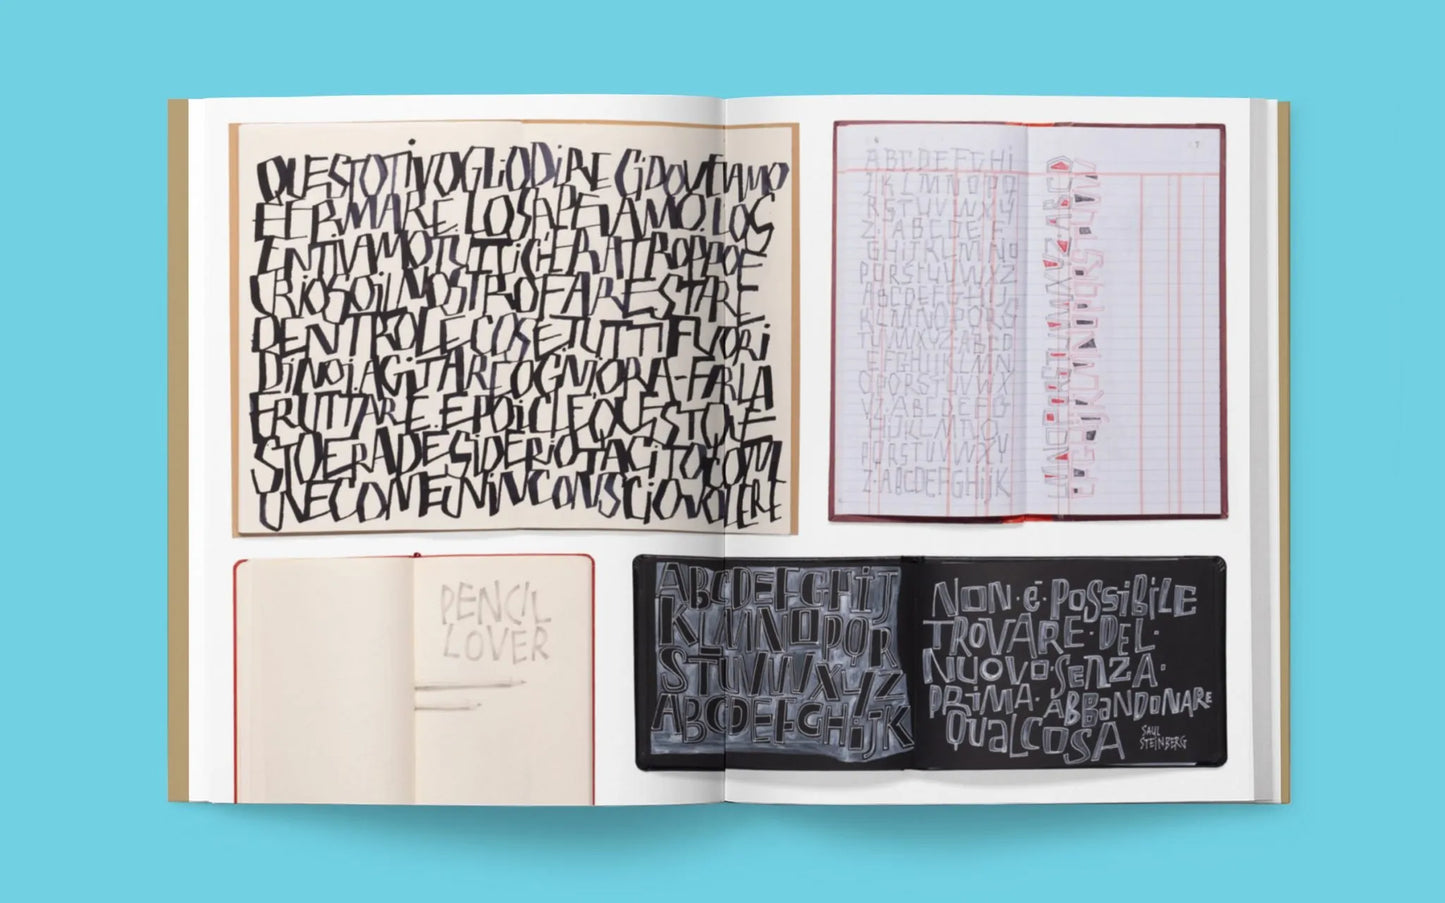 QUESTO TI VOGLIO DIRE CI DOVEVAMO
FERMARE. LO SAPEVAMO. LO S
ENTIVAMO TUTTI CH'ERA TROPPO F
URIOSO IL NOSTRO FARE. STARE
DENTRO LE COSE. TUTTI FUORI
DI NOI. AGITARE OGNI ORA - FARLA
FRUTTARE. E
STO ERA DESIDERIO TACITO COMU
NE COME UN INCONSCIO VOLERE
ABCDEFGHI
JKLMNOPQ
RSTUVWXY
Z·ABCDEF
GHIJKLMNO
PQRSTUVWXYZ
ABCDEFGHIJ
KLMNOPQRS
TUVWXYZ·ABCD
EFGHIJKLMN
OPQRSTUVWX
YZ·ABCDEFG
HIJKLMNO
PQRSTUVWXY
Z·ABCDEFGHIJK
PENCIL
LOVER
ABCDEFGHIJ
KLMNOPQR
STUVWXYZ
ABCDEFGHIJK
NON·È·POSSIBILE
TROVARE·DEL·
NUOVO·SENZA·
PRIMA·ABBANDONARE
QUALCOSA
SAUL
STEINBERG